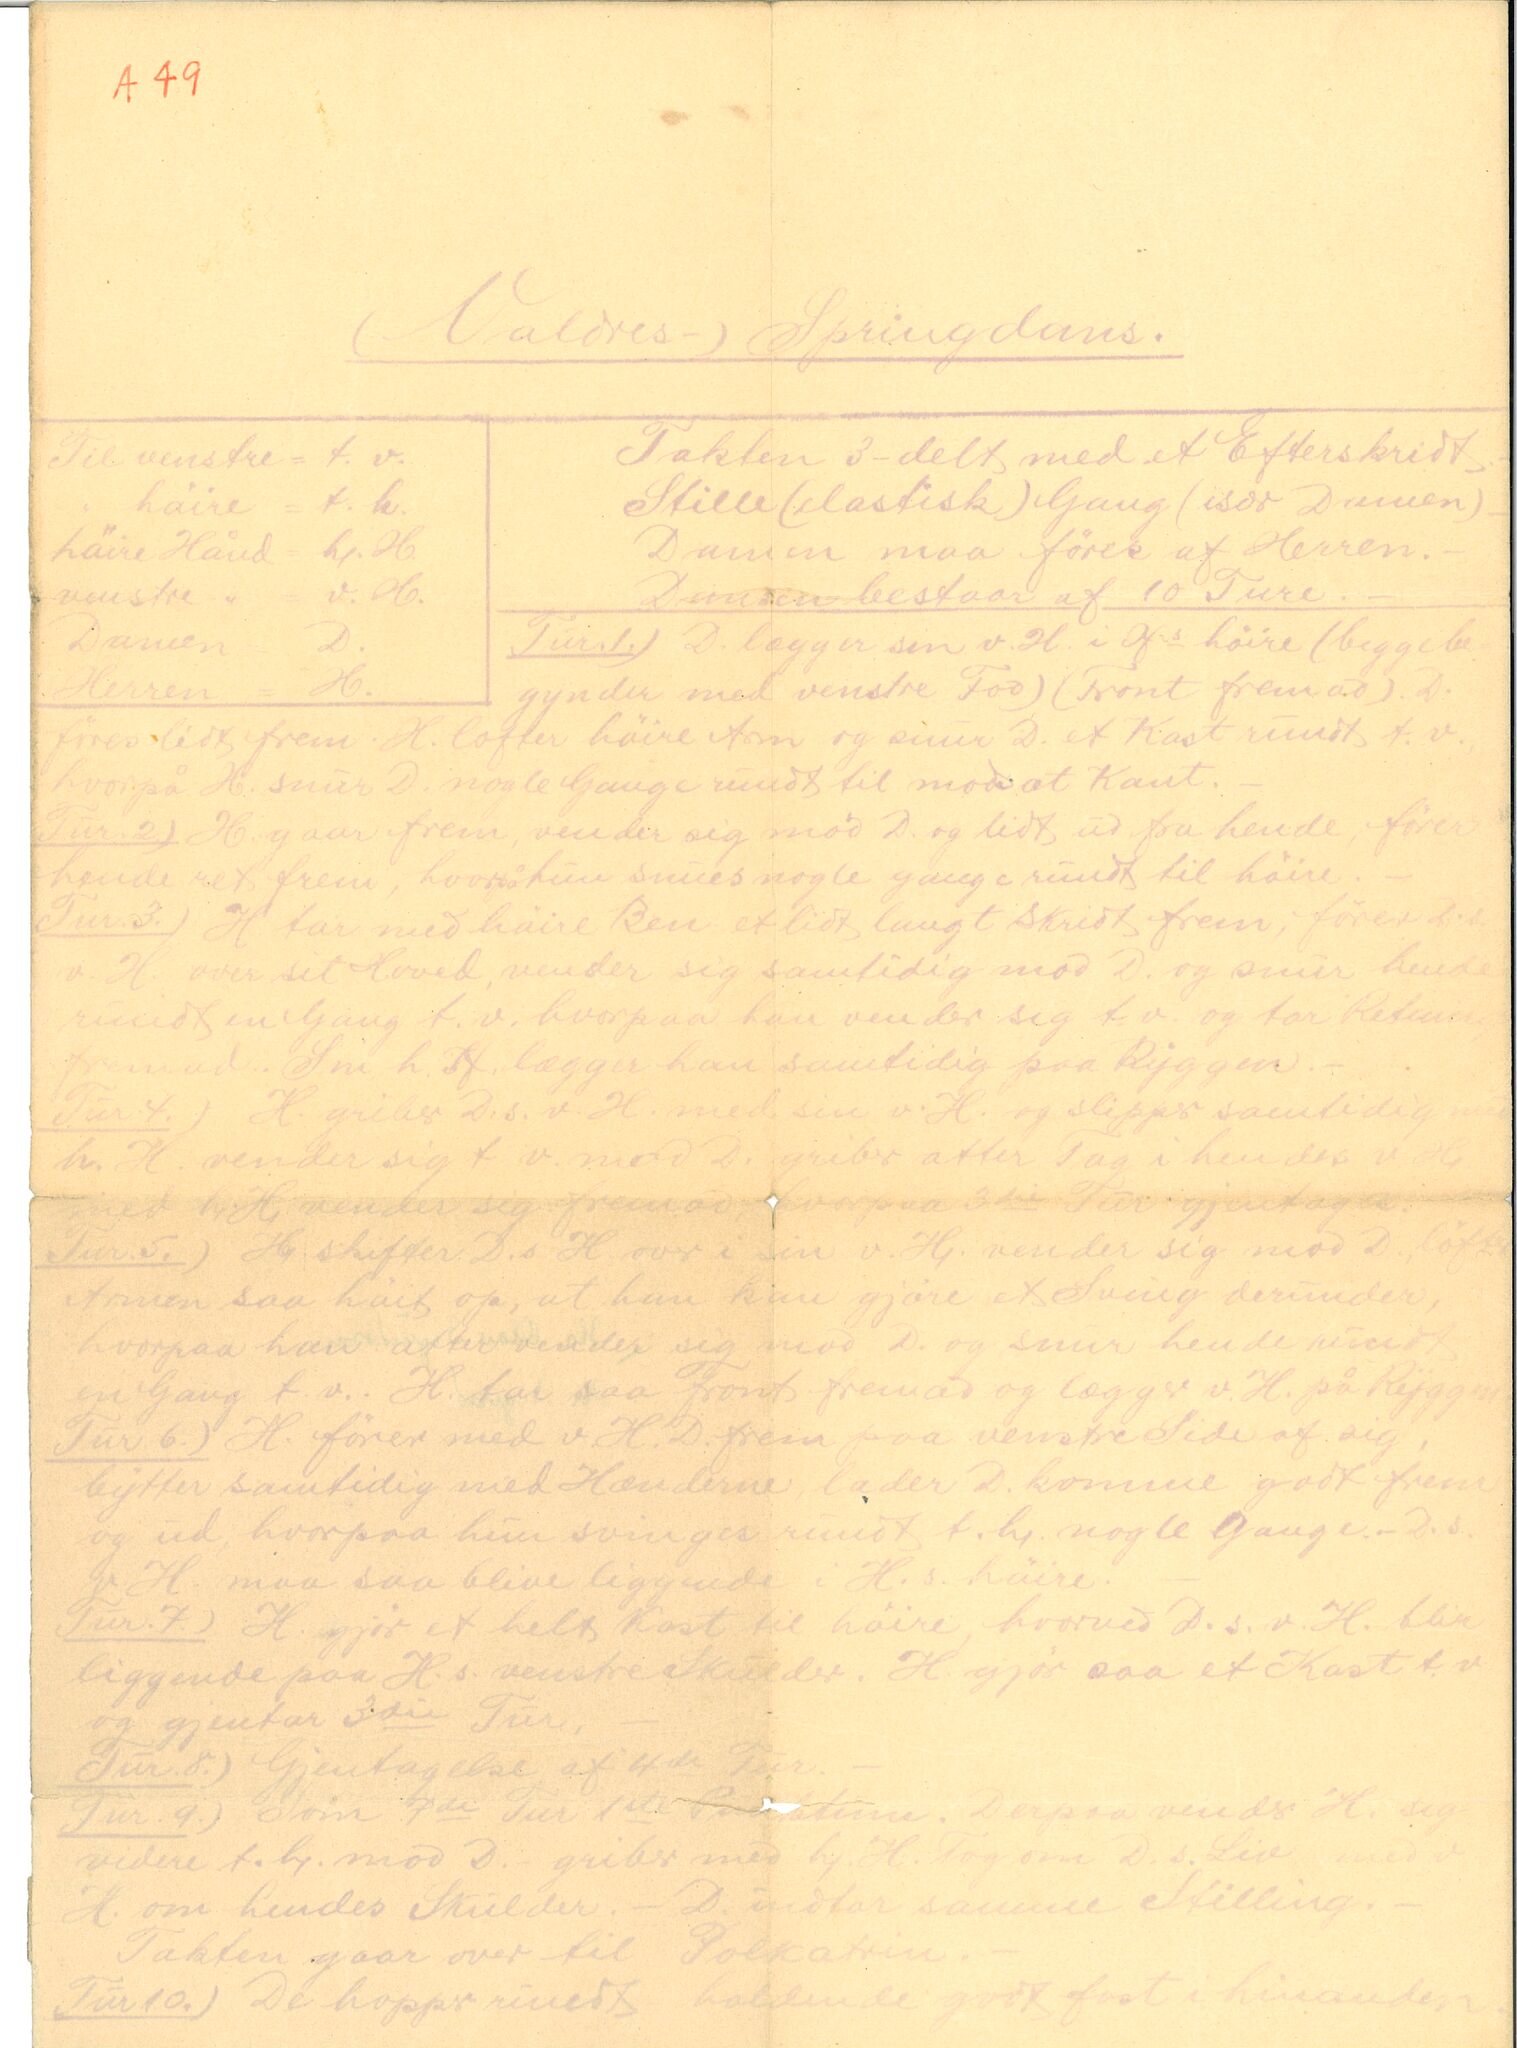 A 49
(Valdres-) Springdans.
Til venstre = t. v.
" höire = t. h.
höire Hånd = h. H
venstre " = v. H.
Damen = D.
Herren = H.
Takten 3-delt med et Efterskridt. -
Stille (elastisk) Gang (især Damen) -
Damen maa föres af Herren. -
Dansen bestaar af 10 Ture. -
Tur. 1.) D. lægger sin v. H. i H-s höire (begge be-
gynder med venstre Fod) (Front fremad). D.
föres lidt frem. H. löfter höire Arm og snur D. et Kast rundt t. v.,
hvorpå H. snur D. nogle Gange rundt til modsat Kant. -
Tur. 2) H. gaar frem, vender sig mod D. og lidt ud fra hende, förer
hende ret frem, hvorpå hun snues nogle gange rundt til höire. -
Tur. 3.) H tar med höire Ben et lidt langt Skridt frem, förer D.s
v. H. over sit Hoved, vender sig samtidig mod D. og snur hende
rundt en Gang t. v. hvorpaa han vender sig t. v. og tar Retning
fremad. Sin h. H. lægger han samtidig paa Ryggen. -
Tur 4.) H. griber D.s. v. H. med sin v. H. og slipper samtidig med
h. H. vender sig t. v. mod D. griber atter Tag i hendes v. H.
med h. H. vender sig fremad, hvorpaa 3die Tur gjentages.
Tur. 5.) H. skifter D.s H. over i sin v. H. vender sig mod D., löfter
Armen saa höit op, at han kan gjöre et Sving derunder,
hvorpaa han atter vender sig mod D. og snur hende rundt
en Gang t. v.. H. tar saa Front fremad og lægger v. H. på Ryggen
Tur 6.) H. förer med v. H. D. frem paa venstre Side af sig,
bytter samtidig med Hænderne, lader D. komme godt frem
og ud, hvorpaa hun svinges rundt t. h. nogle Gange. - D. s.
v. H. maa saa blive liggende i H. s. höire. -
Tur. 7.) H. gjör et helt Kast til höire, hvorved D. s. v. H. blir
liggende paa H. s. venstre Skulder. H. gjör saa et Kast t. v
og gjentar 3die Tur. -
Tur. 8.) Gjentagelse af 4de Tur. -
Tur. 9.) Som 7de Tur 1ste Punktum. Derpaa vender H. sig
videre t. h. mod D. - griber med h. H. Tag om D. s. Liv med v
H. om hendes Skulder. - D. indtar samme Stilling. -
Takten gaar over til Polkatrin. -
Tur 10.) De hopper rundt holdende godt fast i hinanden.